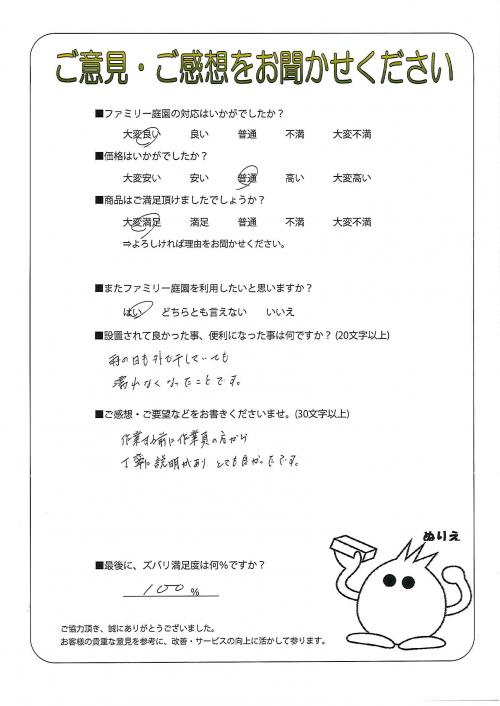 ご意見・ご感想をお聞かせください
■ファミリー庭園の対応はいかがでしたか？
大変良い　良い　普通　不満　大変不満
■価格はいかがでしたか？
大変安い　安い　普通　高い　大変高い
■商品はご満足頂けましたでしょうか？
大変満足　満足　普通　不満　大変不満
⇒よろしければ理由をお聞かせください。
■またファミリー庭園を利用したいと思いますか？
はい　どちらとも言えない　いいえ
■設置されて良かった事、便利になった事は何ですか？(20文字以上)
雨の日も外に干していても
濡れなくなったことです。
■ご感想・ご要望などをお書きくださいませ。(30文字以上)
作業する前に作業員の方から
丁寧に説明があり とても良かったです。
ぬりえ
■最後に、ズバリ満足度は何%ですか？
100 %
ご協力頂き、誠にありがとうございました。
お客様の貴重な意見を参考に、改善・サービスの向上に活かして参ります。